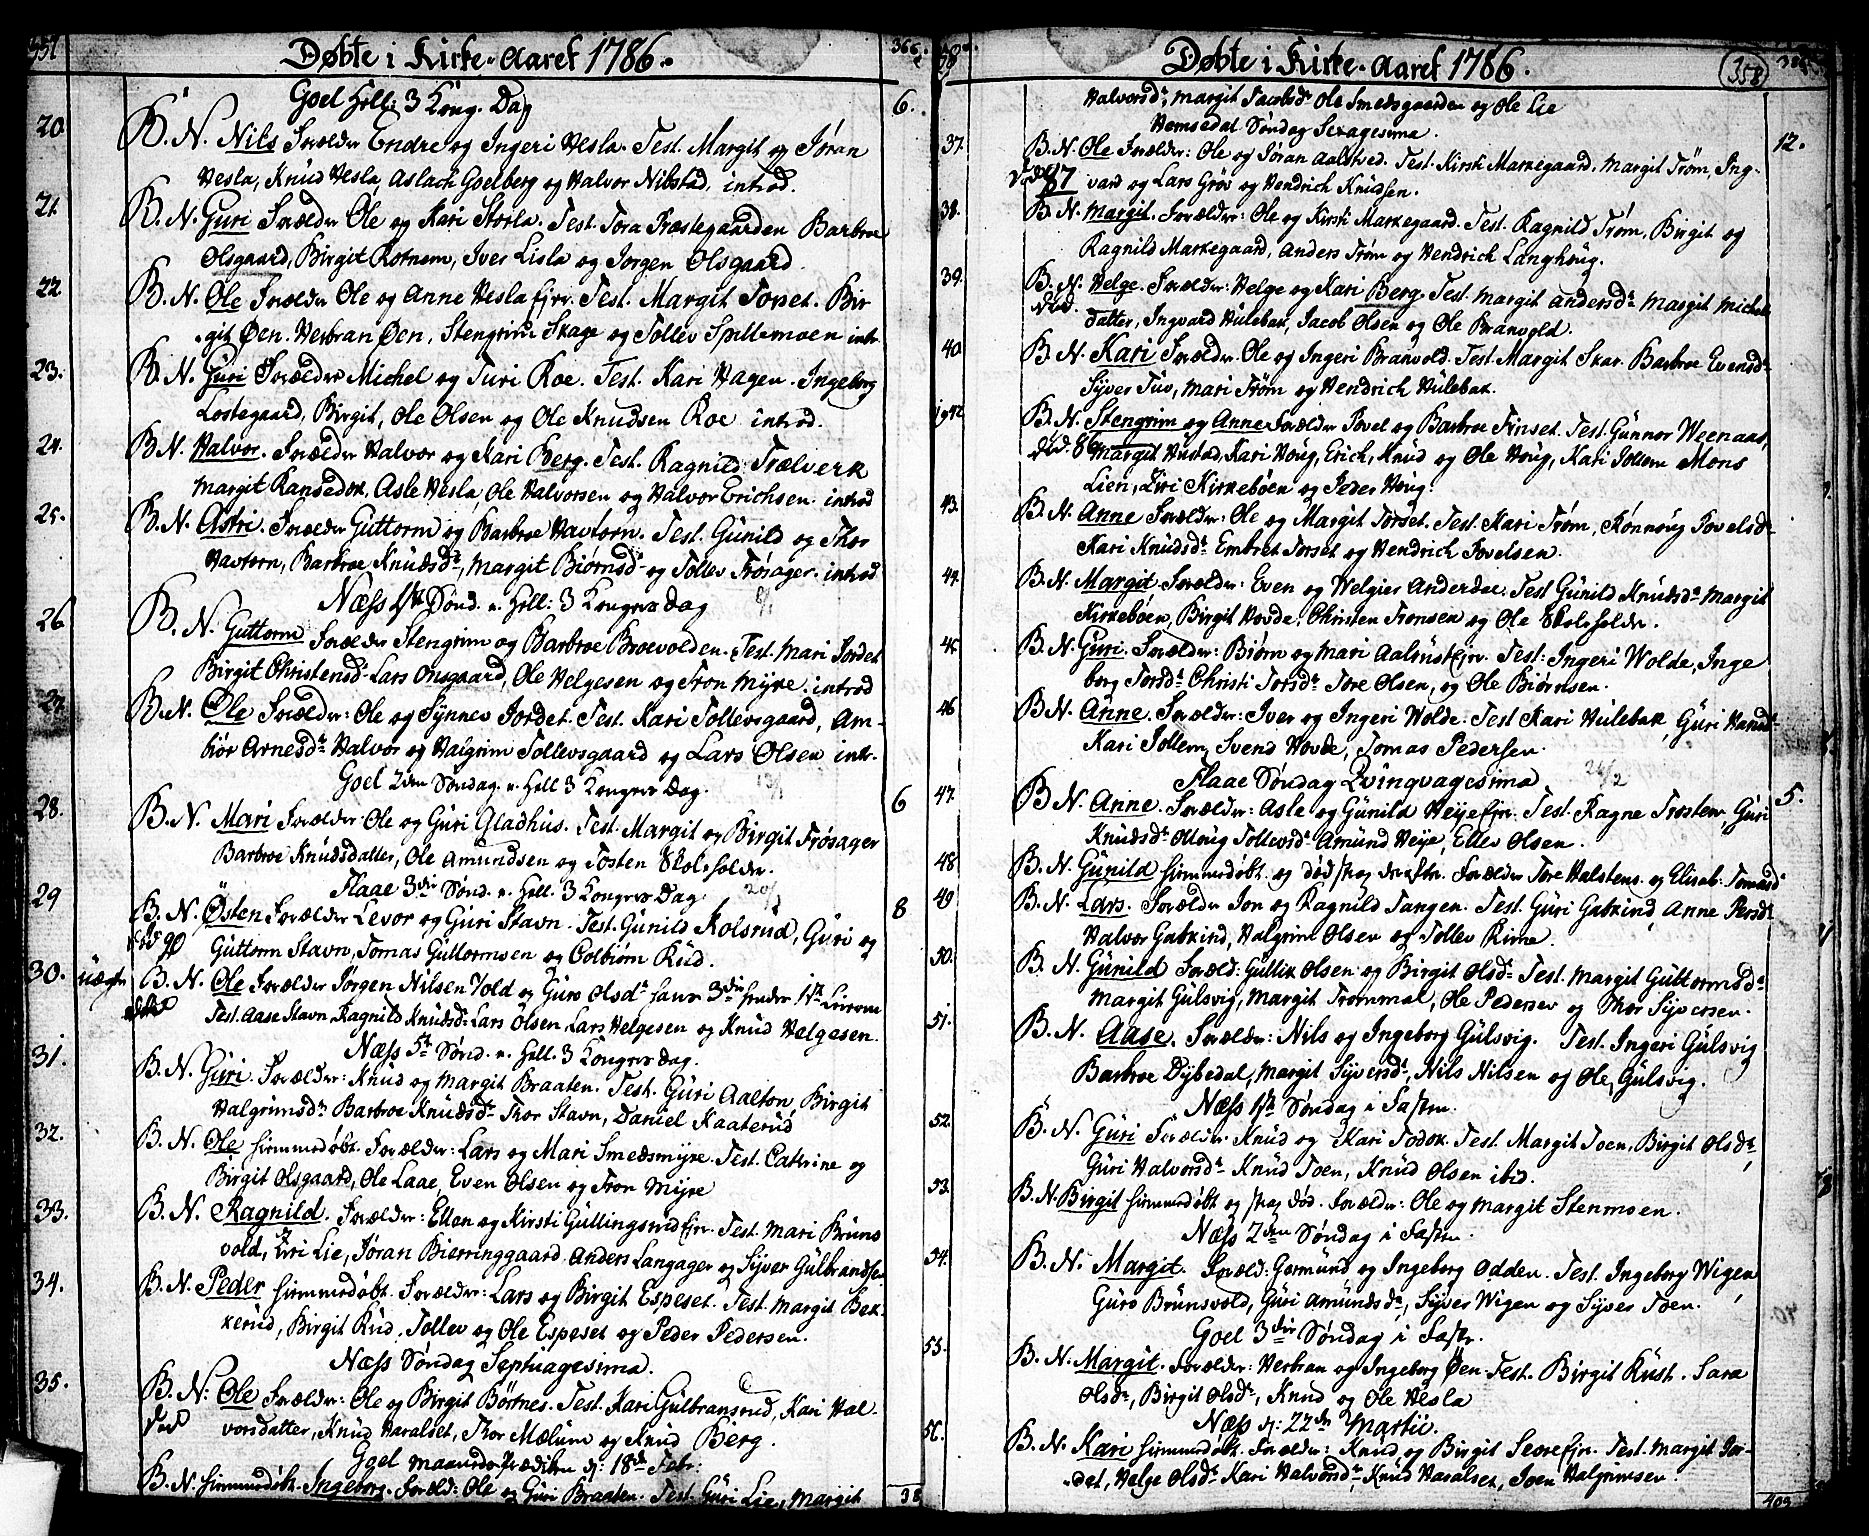 357 Døbte i Kirke-Aaret 1786. 366.
Goel Hell: 3 Kong. Dag 6.
20 B. N. Nils Forælder Endre og Ingeri Vesla. Test. Margit og Jøran
Vesla, Knud Vesla, Aslach Goelberg og Halvor Nibstad. introd.
21. B. N. Guri Forælder Ole og Kari Storla. Test. Tora Præstegaarden Barbroe
Olsgaard, Birgit Rotnem, Iver Lisla og Jorgen Olsgaard
22 B. N. Ole Forælder Ole og Anne Vesla Ejer. Test. Margit Torset. Bir
git Øen. Verbran Øen, Stengrim Skage og Tollev Spillemoen intr.
23. B. N. Guri Forælder Michel og Turi Roe. Test. Kari Hagen. Ingeborg
Lostegaard, Birgit, Ole Olsen og Ole Knudsen Roe introd.
24. B. N. Halvor. Forælder Halvor og Kari Berg. Test. Ragnild Trælverk
Margit Ransedok, Asle Vesla, Ole Halvorsen og Halvor Erichsen. introd
25. B. N. Astri. Forælder Guttorm og Barbroe Havtorn. Test. Gunild og Thor
Havtorn, Barbroe Knudsdr, Margit Biørnsdr og Tollev Frøsager. introd
Næss 1ste Sønd. e. Hell: 3 Kongers Dag 8/1
26 B. N. Guttorm Forælder Stengrim og Barbroe Broevolden. Test. Mari Jordet
Birgit Christensdr Lars Onsgaard, Ole Helgesen og Tron Myre. introd
27. B. N. Ole Forælder: Ole og Synnev Jordet. Test. Kari Tollevsgaard, Am-
biør Arnesdr Halvor og Halgrim Tollevsgaard og Lars Olsen intr.
Goel 2den Søndag. e. Hell 3 Kongers Dag. 6
28. B. N. Mari Forælder Ole og Guri Gladhus. Test. Margit og Birgit Frøsager
Barbroe Knudsdatter, Ole Amundsen og Tosten Skoleholder.
Flaae 3die Sønd. e. Hell. 3 Kongers Dag
29 B. N. Østen Forælder Levor og Guri Stavn. Test. Gunild Kolsrud, Guri og 8
Guttorm Stavn, Tomas Guttormsen og Colbiørn Rud.
30. uægte B. N. Ole Forælder Jørgen Nilsen Vold og Guro Olsdr
Test. Aase Stavn, Ragnild Knudsdr Lars Olsen Lars Helgesen og Knud Helgesen.
Næss 5te Sønd. e. Hell. 3 Kongers Dag.
31. B. N. Guri. Forælder: Knud og Margit Braaten. Test. Guri Aalton, Birgit
Halgrimsdr Barbroe Knudsdr Thor Stavn, Daniel Kaaterud
32. B. N. Ole hiemmedøbt. Forælder: Lars og Mari Smedsmyre. Test. Cathrine og
Birgit Olsgaard, Ole Laae, Even Olsen og Tron Myre
33. B. N. Ragnild. Forælder: Ellen og Kirsti Gullingsrud Ejer. Test. Mari Bruns
vold, Ziri Lie, Jøran Bierringgaard. Anders Langager og Syver Gulbrandsen
34. B. N. Peder hiemmedøbt. Forælder: Lars og Birgit Espeset. Test. Margit Bek-
kerud, Birgit Rud, Tollev og Ole Espeset og Peder Pedersen.
Næss Søndag Septuagesima.
35. B. N. Ole Forælder: Ole og Birgit Børtnes. Test. Kari Gulbransrud, Kari Hal-
død vorsdatter, Knud Haralset, Thor Mælum og Knud Berg.
Goel Maaneds-Prædiken d: 18de Febr.
B. N. hiemmedøbt. Ingeborg. Foræld: Ole og Guri Braaten. Test. Guri Lie, Margit
Døbte i Kirke-Aaret 1786. 358
Halvorsdr, Margit Jacobsdr Ole Smedsgaarden og Ole Lie
Hemsedal Søndag Sexagesima.
37. B. N. Ole Forælder: Ole og Jøran Aalsted. Test. Kirsti Markegaard. Margit Trøm, Ing- 12.
død 87 vard og Lars Grøv og Hendrich Knudsen.
38. B. N. Margit. Forælder: Ole og Kirsti Markegaard. Test. Ragnild Trøm, Birgit og
Ragnild Markegaard, Anders Trøm og Hendrich Langhoug.
39. B. N. Helge. Forælder: Helge og Kari Berg. Test. Margit Andersdr Margit Michels
død. datter, Ingvard Hulebak, Jacob Olsen og Ole Branvold.
40. B. N. Kari Forælder: Ole og Ingeri Branvold. Test. Margit Skar. Barbroe Evensdr
Syver Tuv, Mari Trøm og Hendrich Hulebak.
B. N. Stengrim og Anne Forælder Povel og Barbroe Finset. Test. Gunnor Weenaas,
Margit Hustad, Kari Houg, Erich, Knud og Ole Houg, Kari Tollem Mons
Lien, Ziri Kirkebøen og Peder Houg.
43. B. N. Anne Forælder: Ole og Margit Torset. Test. Kari Trøm, Rønnoug Povelsdr
Kari Knudsdr Embret Torset og Hendrich Povelsen.
44. B. N. Margit. Forælder: Even og Welgier Anderdae. Test Gunild Knudsdr Margit
Kirkebøen, Birgit Hovde, Christen Tronsen og Ole Skoleholder.
45. B. N. Guri. Forælder: Biørn og Mari Aalrust Ejer. Test: Ingeri Wolde, Inge
borg Torsdr Christi Torsdr Tore Olsen, og Ole Biørnsen.
46 B. N. Anne. Forælder: Iver og Ingeri Wolde. Test Kari Hulebak, Guri Hansdr
Kari Tollem, Svend Hovde, Tomas Pedersen.
Flaae Søndag Qvinqvagesima 26/2
47. B. N. Anne. Forælder: Asle og Gunild Veye Ejer. Test. Ragne Trosten, Guri 5.
Knudsdr Alloug Tollevsdr Amund Veye, Ellev Olsen.
48 B. N. Gunild hiemmedøbt og død strax derefter. Forælder Tore Halstens. og Elisab. Tomasdr
49 B. N. Lars. Forælder Jon og Ragnild Tangen. Test. Guri Gabkind, Anne Persdr
Halvor Gabkind, Halgrim Olsen og Tollev Rime.
50. B. N. Gunild Foræld: Gullik Olsen og Birgit Olsdr Test. Margit Guttormsdr
Margit Gulsvig, Margit Trommal, Ole Pedersen og Thor Syversen.
51. B. N. Aase. Forælder: Nils og Ingeborg Gulsvig. Test. Ingeri Gulsvig
Barbroe Dybedal, Margit Syversdr, Nils Nilsen og Ole Gulsvig.
Næss 1ste Søndag i Fasten.
52. B. N. Guri Forælder Knud og Kari Todok. Test. Margit Toen. Birgit Olsdr,
Guri Halvorsdr Knud Toen, Knud Olsen ibid.
53. B. N. Birgit hiemmedøbt og strax død. Forælder: Ole og Margit Stenmoen.
Næss 2den Søndag i Fasten.
54. B. N. Margit. Foræld: Germund og Ingeborg Odden. Test. Ingeborg Wigen,
Guro Brunsvold, Guri Amundsdr, Syver Wigen og Syver Toen.
Goel 3die Søndag i Faste.
55. B. N. Margit. Forælder: Verbran og Ingeborg Øen. Test. Birgit Rust. Sara
Olsdr, Birgit Olsdr, Knud og Ole Vesla
Næss d: 22de Martii.
56. B. N. Kari hiemmedøbt. Forælder: Knud og Birgit Seore Ejer. Test. Margit Jor-
det, Helge Olsdr Kari Halvorsdr, Knud Haralset, Joen Halgrimsen.
403